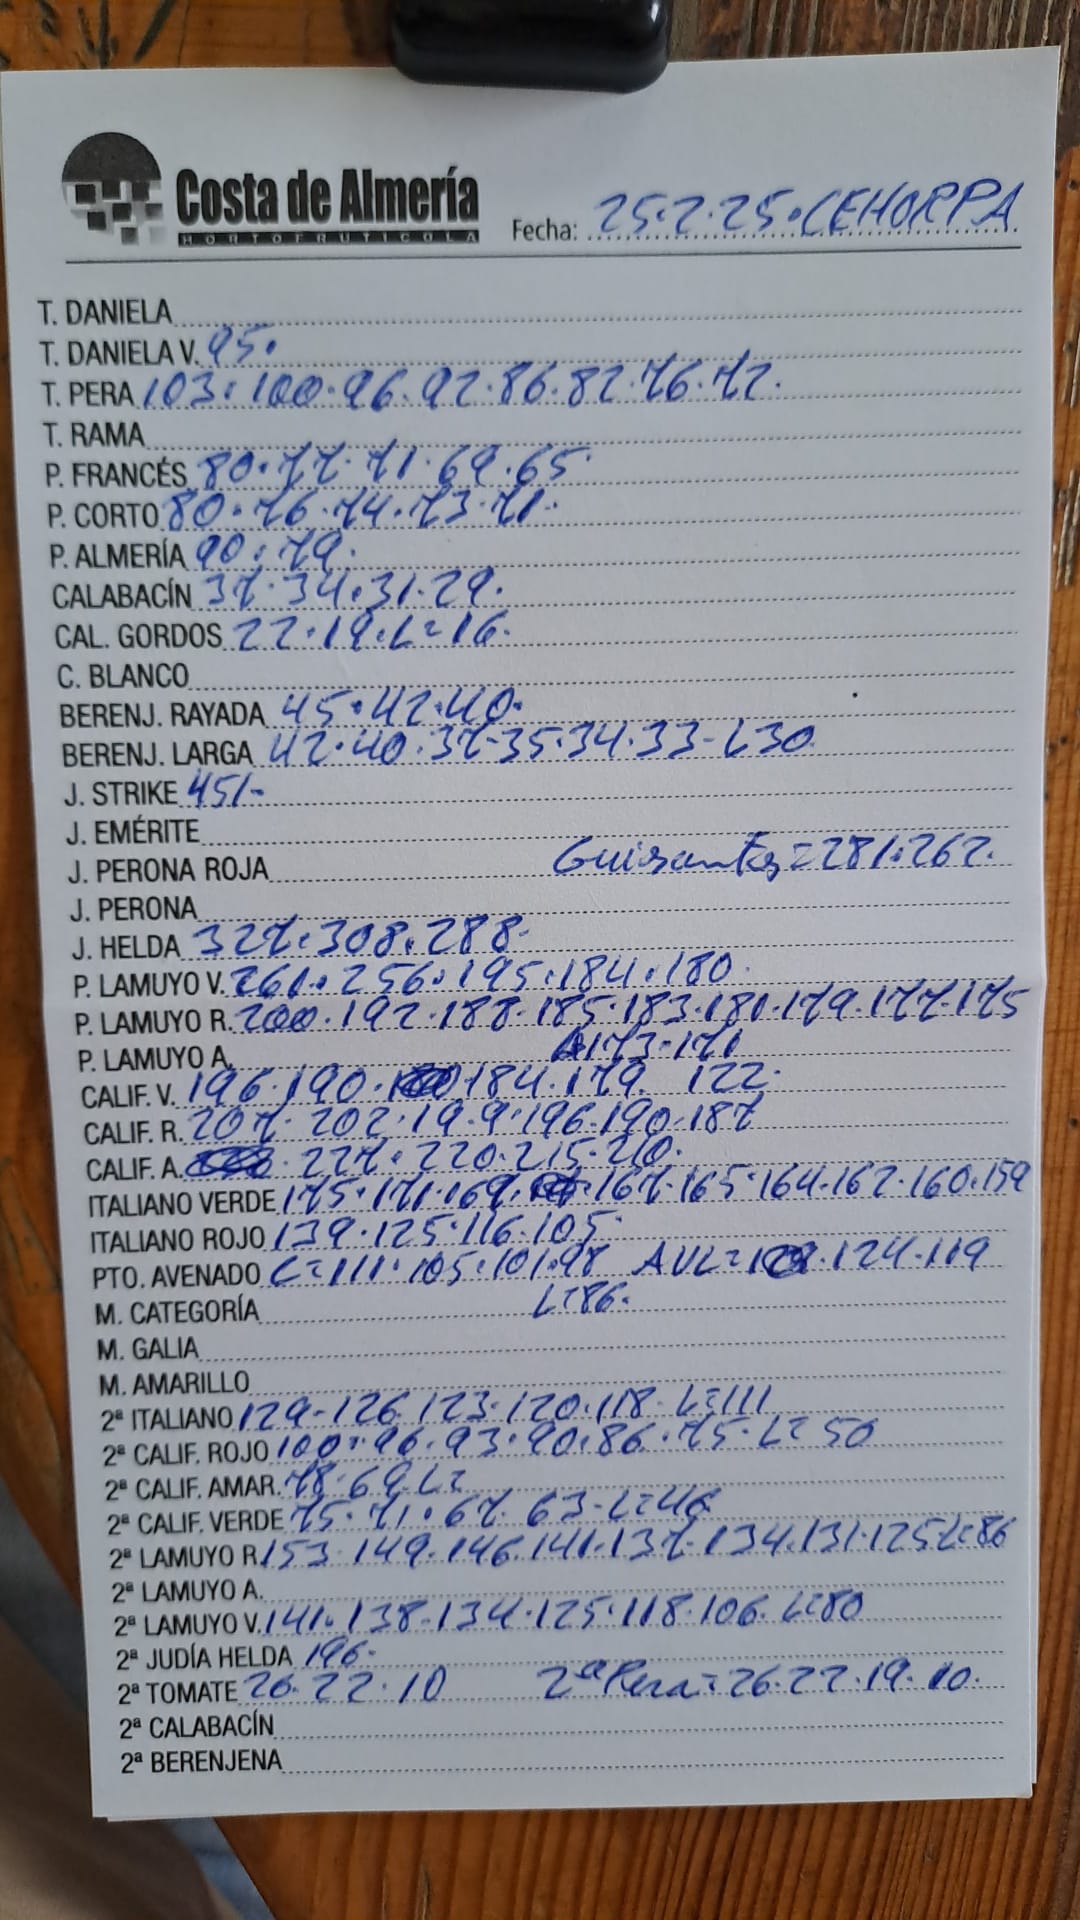 Costa de Almería
HORTOFRUTICOLA
Fecha: 25.2.25. CEHORPA
T. DANIELA
T. DANIELA V. 95.
T. PERA 103. 100. 96. 92. 86. 82. 76. 72.
T. RAMA
P. FRANCÉS 80. 77. 71. 69. 65
P. CORTO 80. 76. 74. 73. 71.
P. ALMERÍA 90. 79.
CALABACÍN 37. 34. 31. 29.
CAL. GORDOS 22. 19. L=16.
C. BLANCO
BERENJ. RAYADA 45. 42. 40.
BERENJ. LARGA 42. 40. 37-35. 34. 33-L30
J. STRIKE 451-
J. EMÉRITE
J. PERONA ROJA Guisantes=281.262.
J. PERONA
J. HELDA 327. 308. 288-
P. LAMUYO V. 261. 256. 195. 184. 180.
P. LAMUYO R. 200. 192. 188. 185. 183. 181. 179. 177-175
P. LAMUYO A. 173-171
CALIF. V. 196. 190. 184. 179. 122.
CALIF. R. 207. 202. 19.9. 196. 190. 187
CALIF. A. 227. 220. 215. 210.
ITALIANO VERDE 175. 171. 169. 167. 165. 164. 162. 160. 159
ITALIANO ROJO 139. 125. 116. 105.
PTO. AVENADO C=111. 105. 101. 98 AVL= .124. 119
M. CATEGORÍA L=86.
M. GALIA
M. AMARILLO
2ª ITALIANO 129-126. 123. 120. 118. L=111
2ª CALIF. ROJO 100. 96. 93. 90. 86. 75. L=50
2ª CALIF. AMAR. 78. 69. L=
2ª CALIF. VERDE 75. 71. 67. 63-L=46
2ª LAMUYO R. 153. 149. 146. 141. 137. 134. 131. 125 L=86
2ª LAMUYO A.
2ª LAMUYO V. 141. 138. 134. 125. 118. 106. L=80
2ª JUDÍA HELDA 196.
2ª TOMATE 26. 22. 10 2ª Pera=26. 22. 19. 10.
2ª CALABACÍN
2ª BERENJENA